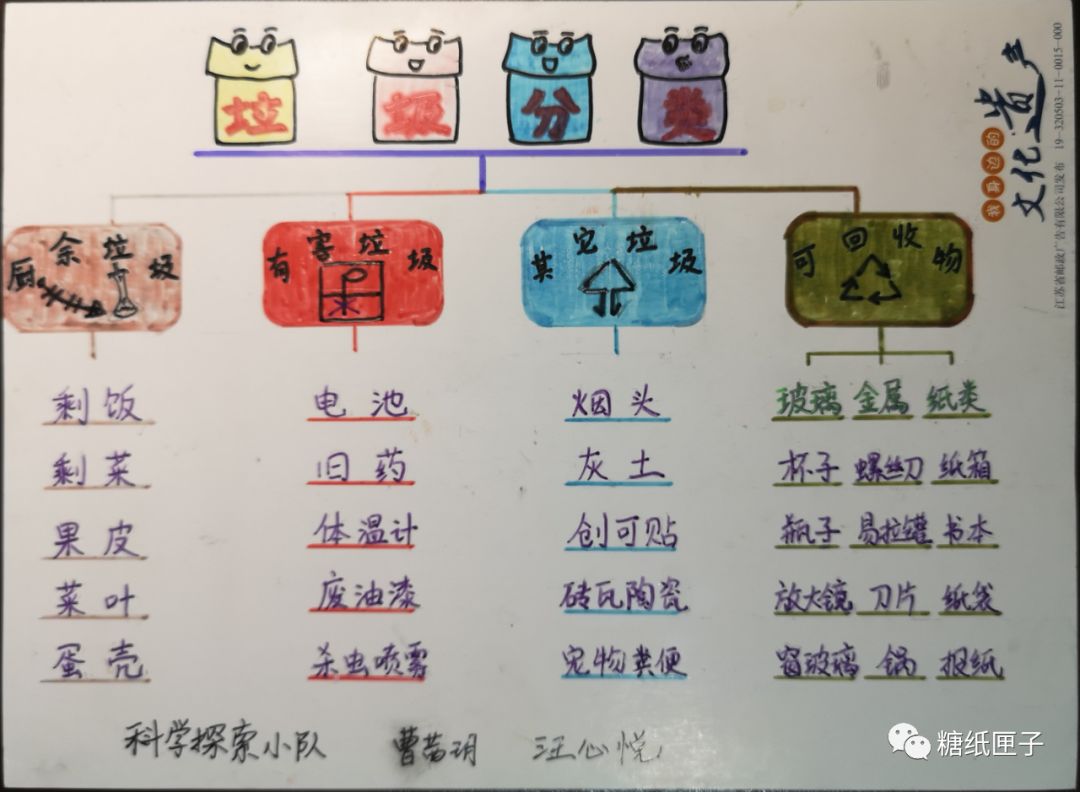 垃圾分类
厨余垃圾 有害垃圾 其它垃圾 可回收物
剩饭 电池 烟头 玻璃 金属 纸类
剩菜 旧药 灰土 杯子 螺丝刀 纸箱
果皮 体温计 创可贴 瓶子 易拉罐 书本
菜叶 废油漆 砖瓦陶瓷 放大镜 刀片 纸袋
蛋壳 杀虫喷雾 宠物粪便 窗玻璃 锅 报纸
科学探索小队 曹茜玥 汪心悦
我身边的
文化遗产
江苏省邮政广告有限公司发布 19-320503-11-0015-000
糖纸匣子